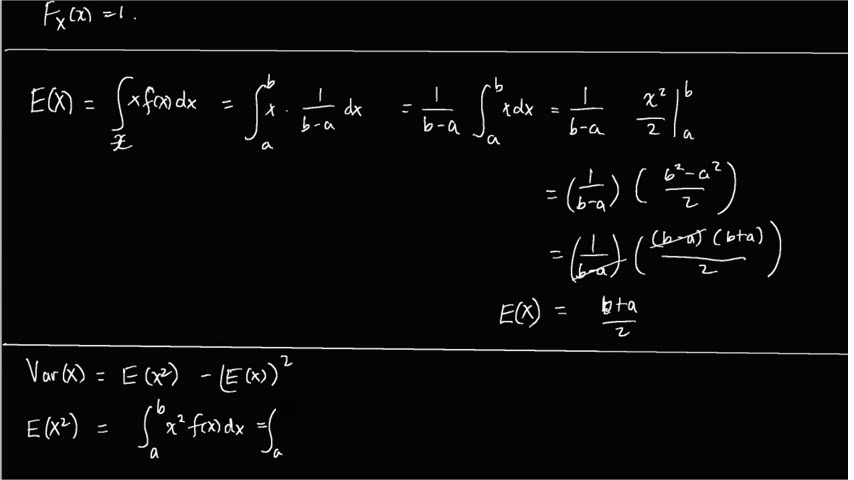 F_X(x) = 1.
E(X) = ∫_𝒳 x f(x) dx = ∫_a^b x · 1/(b-a) dx = 1/(b-a) ∫_a^b x dx = 1/(b-a) x²/2 |_a^b
= (1/(b-a)) ((b²-a²)/2)
= (1/(b-a)) ((b-a)(b+a)/2)
E(X) = (b+a)/2
Var(X) = E(X²) - (E(X))²
E(X²) = ∫_a^b x² f(x) dx = ∫_a